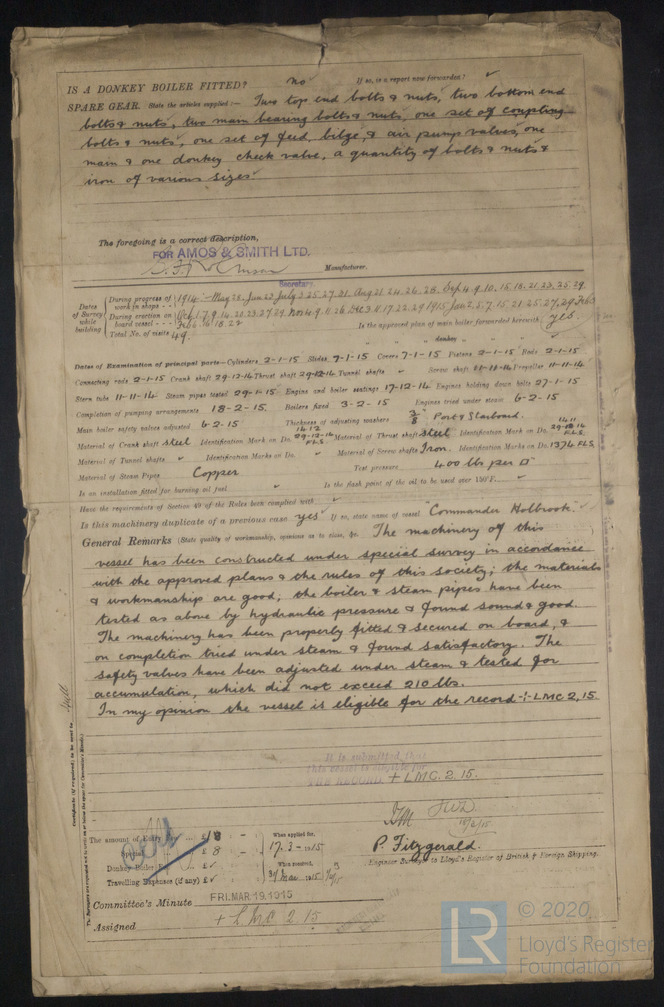 IS A DONKEY BOILER FITTED? no If so, is a report now forwarded?
SPARE GEAR. State the articles supplied:— Two top end bolts & nuts, two bottom end
bolts & nuts, two main bearing bolts & nuts, one set of coupling
bolts & nuts, one set of feed, bilge, & air pump valves, one
main & one donkey check valve, a quantity of bolts & nuts &
iron of various sizes
The foregoing is a correct description,
FOR AMOS & SMITH LTD.
Manufacturer.
Secretary.
Dates of Survey while building
During progress of work in shops - - 1914:- May 25, Jun 22, July 3. 25. 27. 31 Aug 21. 24. 26. 28. Sep 4. 9. 10. 15. 18. 21. 23. 25. 29.
During erection on board vessel - - - Oct 1. 7. 9. 14. 21. 23. 27. 29 Nov 4. 9. 11. 26 Dec 3. 11. 17. 22. 29 1915 Jan 2. 5. 7. 15. 21. 25. 27. 29 Feb 3
Feb 6. 16. 18. 22
Total No. of visits 49. Is the approved plan of main boiler forwarded herewith yes
" " " donkey " " "
Dates of Examination of principal parts—Cylinders 2-1-15 Slides 7-1-15 Covers 7-1-15 Pistons 2-1-15 Rods 2-1-15
Connecting rods 2-1-15 Crank shaft 29-12-14 Thrust shaft 29-12-14 Tunnel shafts Screw shaft 11-11-14 Propeller 11-11-14
Stern tube 11-11-14. Steam pipes tested 29-1-15 Engine and boiler seatings 17-12-14 Engines holding down bolts 27-1-15
Completion of pumping arrangements 18-2-15. Boilers fixed 3-2-15 Engines tried under steam 6-2-15
Main boiler safety valves adjusted 6-2-15 Thickness of adjusting washers 3/8 Port & Starboard.
Material of Crank shaft Steel Identification Mark on Do. 1412 29-12-14 FLS Material of Thrust shaft Steel Identification Mark on Do. 1411 29-12-14 FLS.
Material of Tunnel shafts Identification Marks on Do. Material of Screw shafts Iron. Identification Marks on Do. 1376 FLS.
Material of Steam Pipes Copper Test pressure 400 lbs per □"
Is an installation fitted for burning oil fuel Is the flash point of the oil to be used over 150°F.
Have the requirements of Section 49 of the Rules been complied with
Is this machinery duplicate of a previous case yes If so, state name of vessel "Commander Holbrook"
General Remarks (State quality of workmanship, opinions as to class, &c. The machinery of this
vessel has been constructed under special survey in accordance
with the approved plans & the rules of this society; the materials
& workmanship are good; the boiler & steam pipes have been
tested as above by hydraulic pressure & found sound & good.
The machinery has been properly fitted & secured on board, &
on completion tried under steam & found satisfactory. The
safety valves have been adjusted under steam & tested for
accumulation, which did not exceed 210 lbs.
In my opinion the vessel is eligible for the record + LMC 2.15
It is submitted that
this vessel is eligible for
THE RECORD + LMC. 2. 15.
Hull
Certificate (if required) to be sent to
The amount of Entry Fee .. £ 1/8
Special £ 8
Donkey Boiler Fee £
Travelling Expenses (if any) £
When applied for,
17. 3 - 1915
When received,
P. Fitzgerald.
Engineer Surveyor to Lloyd's Register of British & Foreign Shipping.
Committee's Minute FRI. MAR 19. 1915
Assigned + LMC 2.15
LR
© 2020
Lloyd's Register
Foundation